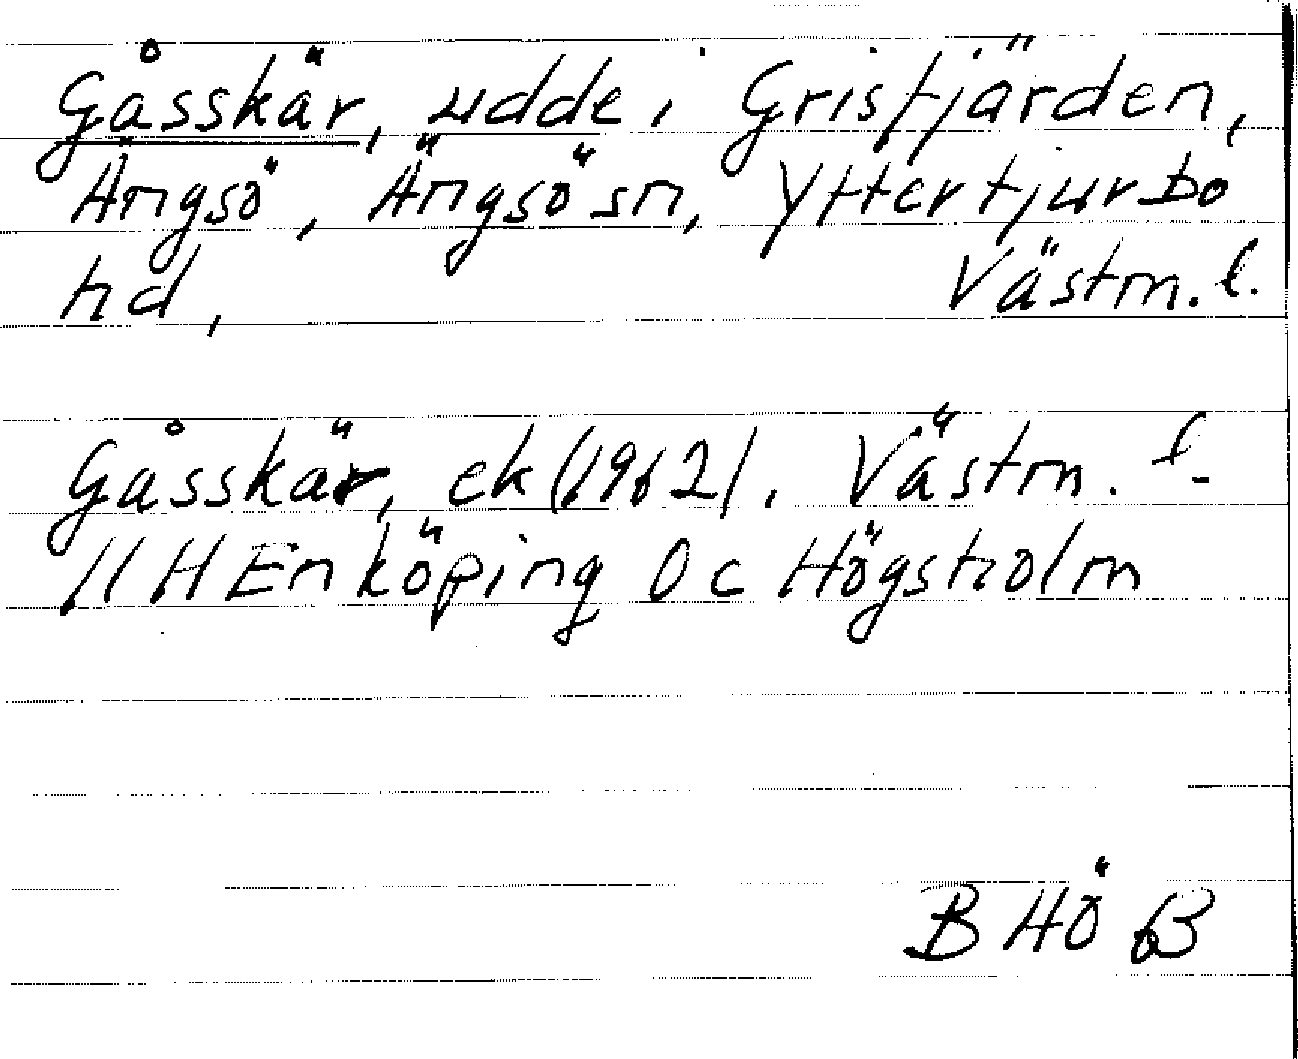 Gåsskär, udde i Grisfjärden,
Ängsö, Ängsö sn, Yttertjurbo
hd, Västm. l.
Gåsskär, ek (1962). Västm. l.
11H Enköping 0c Högsholm
B HÖ B